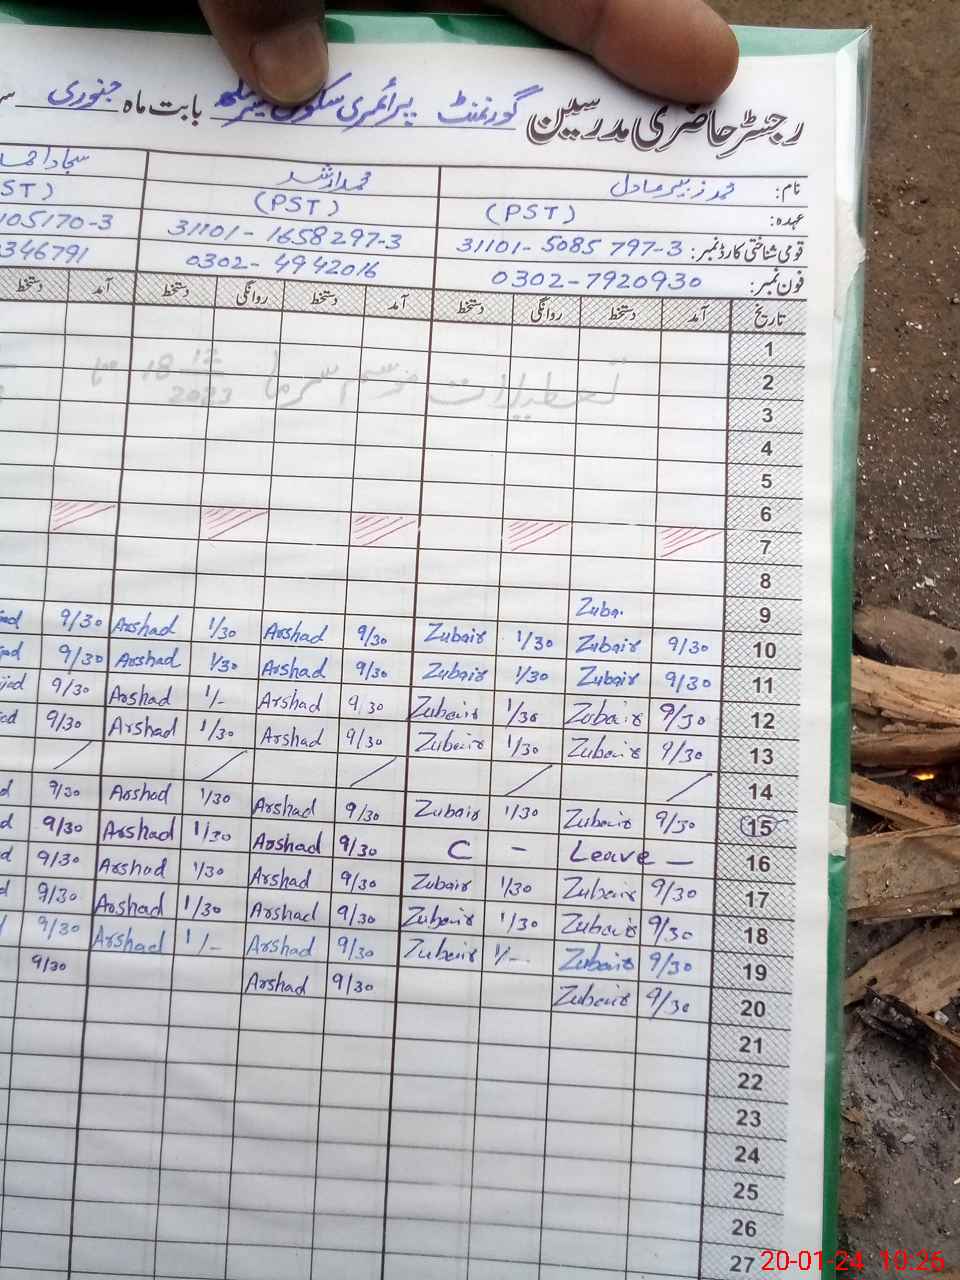 رجسٹر حاضری مدرسین گورنمنٹ پرائمری سکول بابت ماہ جنوری
نام: محمد زبیر عادل محمد ارشد سجاد احمد
عہدہ: (PST) (PST) ST)
قومی شناختی کارڈ نمبر: 31101-5085797-3 31101-1658297-3 105170-3
فون نمبر: 0302-7920930 0302-4942016 346791
تاریخ آمد دستخط روانگی دستخط آمد دستخط روانگی دستخط آمد دستخط
1
2 تعطیلات موسم سرما 18 12 2023 تا
3
4
5
6
7
8
9 Zuba
10 9/30 Zubair 1/30 Zubair 9/30 Arshad 1/30 Arshad 9/30
11 9/30 Zubair 1/30 Zubair 9/30 Arshad 1/30 Arshad 9/30
12 9/30 Zubair 1/30 Zubair 9/30 Arshad 1/- Arshad 9/30
13 9/30 Zubair 1/30 Zubair 9/30 Arshad 1/30 Arshad 9/30
14
15 9/30 Zubair 1/30 Zubair 9/30 Arshad 1/30 Arshad 9/30
16 – Leave – C 9/30 Arshad 1/30 Arshad 9/30
17 9/30 Zubair 1/30 Zubair 9/30 Arshad 1/30 Arshad 9/30
18 9/30 Zubair 1/30 Zubair 9/30 Arshad 1/30 Arshad 9/30
19 9/30 Zubair 1/- Zubair 9/30 Arshad 1/- Arshad 9/30
20 9/30 Zubair 9/30 Arshad 9/30
21
22
23
24
25
26
27
20-01-24 10:26